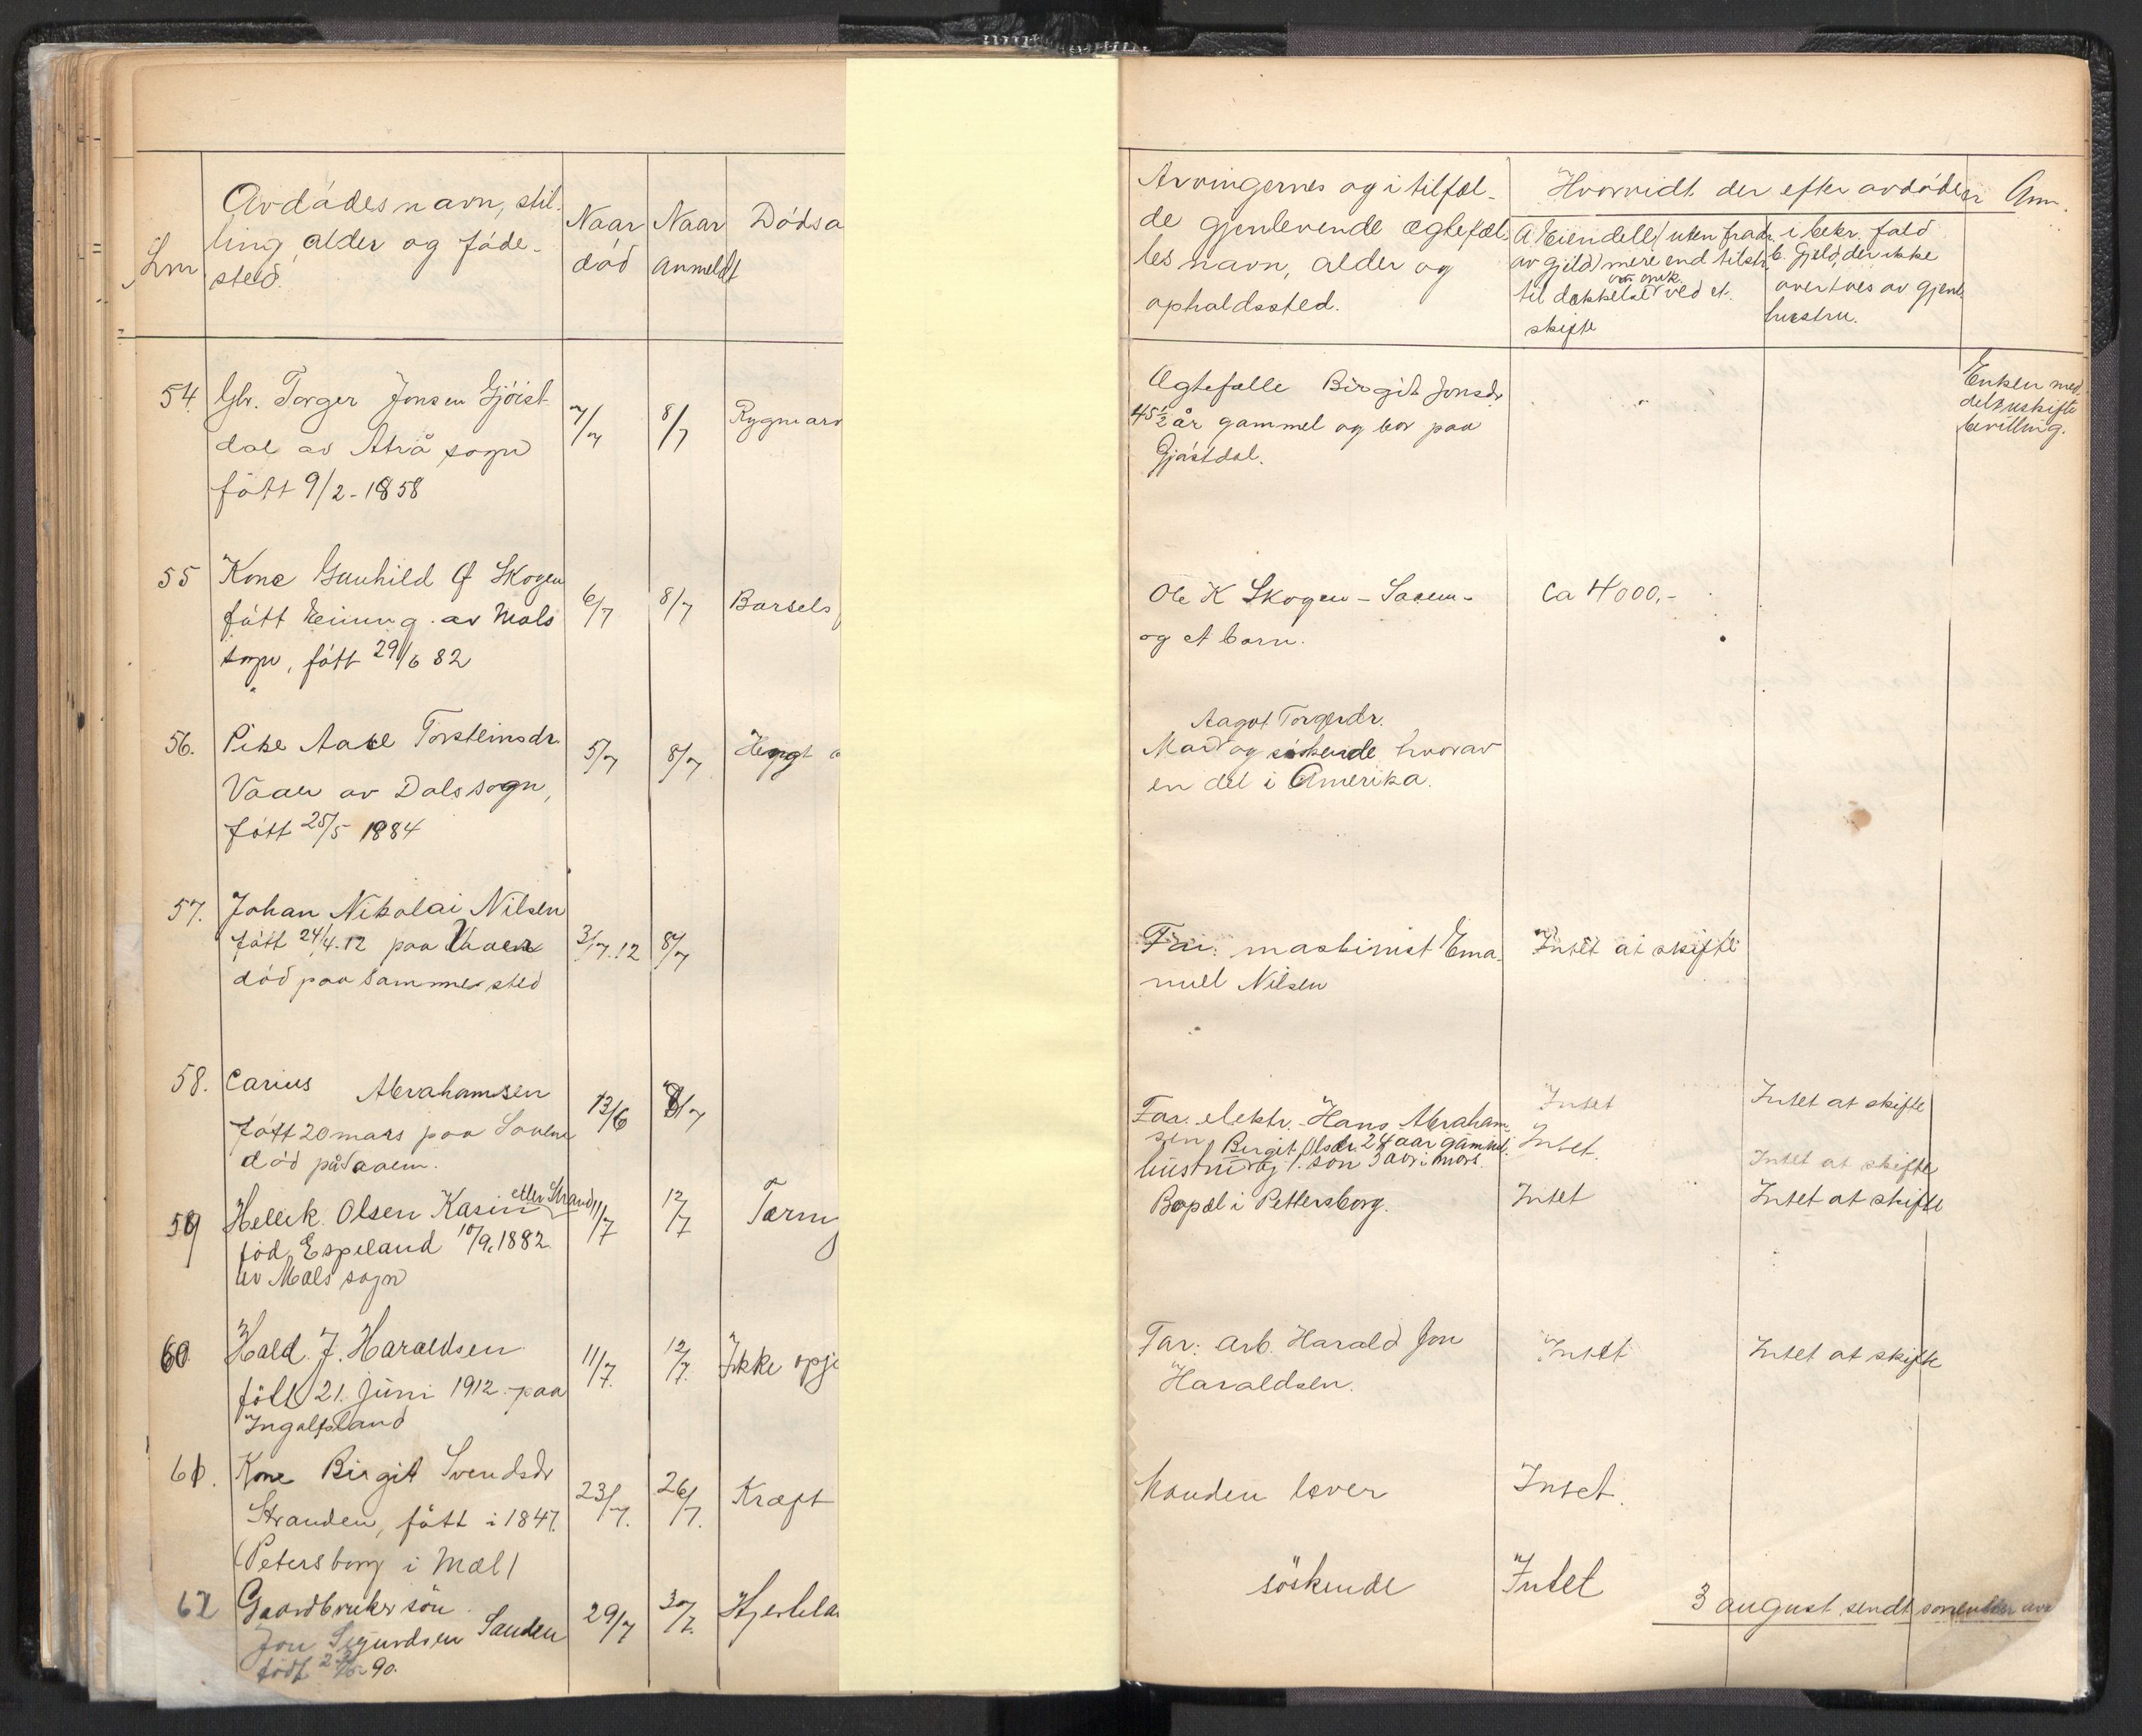 Lnr
Avdødes navn, stil-
ling, alder og føde-
sted.
Naar
død
Naar
anmeldt
Dødsa
Arvingernes og i tilfæl-
de gjenlevende ægtefæl-
les navn, alder og
opholdssted.
Hvorvidt der efter avdøde er
A. Eiendele (uten fradr.
av gjeld) mere end tilstr.
til dækkelse ved et
skifte
i bekr. fald
b. Gjeld, der ikke
overtaes av gjenl.
hustru.
Anm.
54. Gbr. Torger Jonsen Gjöist
dal av Atrå sogn
fött 9/2-1858
7/7
8/7
Rygmarv
Ægtefælle Birgit Jonsdr.
45½ år gammel og bor paa
Gjöistdal.
Enken med-
delt uskifte
bevilling.
55 Kone Gunhild O Skogen
født av Mæls
sogn, født 29/6 82
6/7
8/7
Barsels
Ole K Skogen - Saaem-
og et barn.
Ca 4000,-
56. Pike Aase Torsteinsdr.
Vaaer av Dals sogn,
født 25/5 1884
5/7
8/7
Hengt
Aagot Torgerdr.
Mor og søskende hvorav
en del i Amerika.
57. Johan Nikolai Nilsen
født 24/4.12 paa Vaaer
død paa samme sted
3/7.12
8/7
Far: maskinist Ema-
nuel Nilsen
Intet at skifte
58. Carius Abrahamsen
født 20 mars paa Saaem
død på Saaem.
13/6
8/7
Far. elektr. Hans Abraham-
sen
Intet
Intet at skifte
59 Hellek Olsen Kasin eller Strand
fød Espeland 10/9.1882
av Mæls sogn
11/7
12/7
Tarm
Birgit Olsdr. 24 aar gammel.
hustru og 1. søn 3 aar i mars.
Bopæl i Pettersborg.
Intet.
Intet at skifte
Intet
Intet at skifte
60 Hald. J. Haraldsen
født 21. juni 1912 paa
Ingolfsland
11/7.
12/7.
Ikke opgi
Far: arb. Harald Jon
Haraldsen.
Intet
Intet at skifte
61. Kone Birgit Svendsdr
Stranden, født i 1847.
(Petersborg i Mæl)
23/7.
26/7.
Kræft
Manden lever
Intet.
62 Gaardbruker søn
Jon Sigurdsen Sanden
født 90.
29/7
30/7.
Hjertela
söskende
Intet
3 august sendt